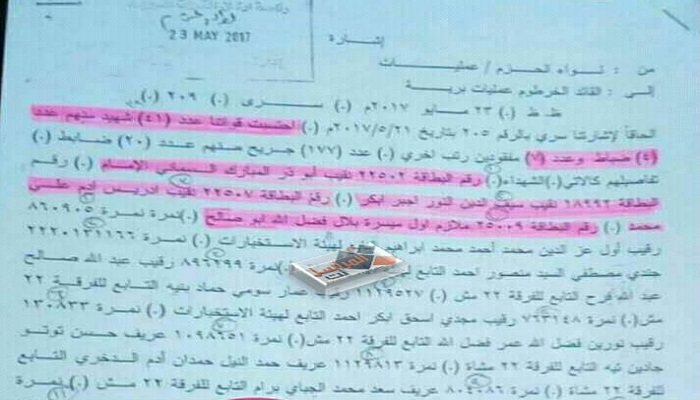 23 MAY 2017
إشارة
من : لواء الحزم / عمليات
إلى : القائد الخرطوم عمليات برية
ظ. ظ (.) ٢٣ مايو ٢٠١٧م (.) سرى (.) ٢٠٩ (.)
الحاقاً لإشارتنا سري بالرقم ٢٠٥ بتاريخ ٢٠١٧/٥/٢١م (.) احتسبت قواتنا عدد (٤١) شهيد منهم عدد
(٤) ضباط وعدد (٧) مفقودين رتب اخري (.) عدد (١٧٧) جريح منهم عدد (٢٠) ضابط (.)
تفاصيلهم كالاتي (.) الشهداء (.) رقم البطاقة ٢٢٥٠٢ نقيب أبو ذر المبارك السماني الإمام (.) رقم
البطاقة ١٨٢٩٢ نقيب سيف الدين النور اجبر ابكر (.) رقم البطاقة ٢٢٥٠٧ نقيب ادريس آدم علي
محمد (.) رقم البطاقة ٢٥٠٠٩ ملازم اول ميسرة بلال فضل الله ابو صالح (.) نمرة ٨٦٠٩٠٥
رقيب أول عز الدين محمد أحمد محمد ابراهيم لهيئة الاستخبارات (.) نمرة ٢٢٢٠١٣١١٦٦
جندي مصطفي السيد منصور احمد التابع (.) نمرة ٨٩٦٢٩٩ رقيب عبد الله صالح
عبد الله فرح التابع للفرقة ٢٢ مش (.) ١١٢٩٥٢٧ رقيب عمار سومي حماد بنيه التابع للفرقة ٢٢
مش (.) نمرة ٧٦٣١٤٨ رقيب مجدي اسحق ابكر احمد التابع لهيئة الاستخبارات (.) نمرة ١٣٠٨٣٣
رقيب نورين فضل الله عمر فضل الله التابع للفرقة ٢٢ مش (.) نمرة ١٠٩٨٦٥١ عريف حسن توتو
جادين تيه التابع للفرقة ٢٢ مشاة (.) نمرة ١١٢٩٨١٣ عريف حمد النيل حمدان أدم الدخري التابع
للفرقة ٢٢ مشاة (.) نمرة ٨٠٤٠٨٦ عريف سعد محمد الجباي برام التابع للفرقة ٢٢ مش (.) نمرة